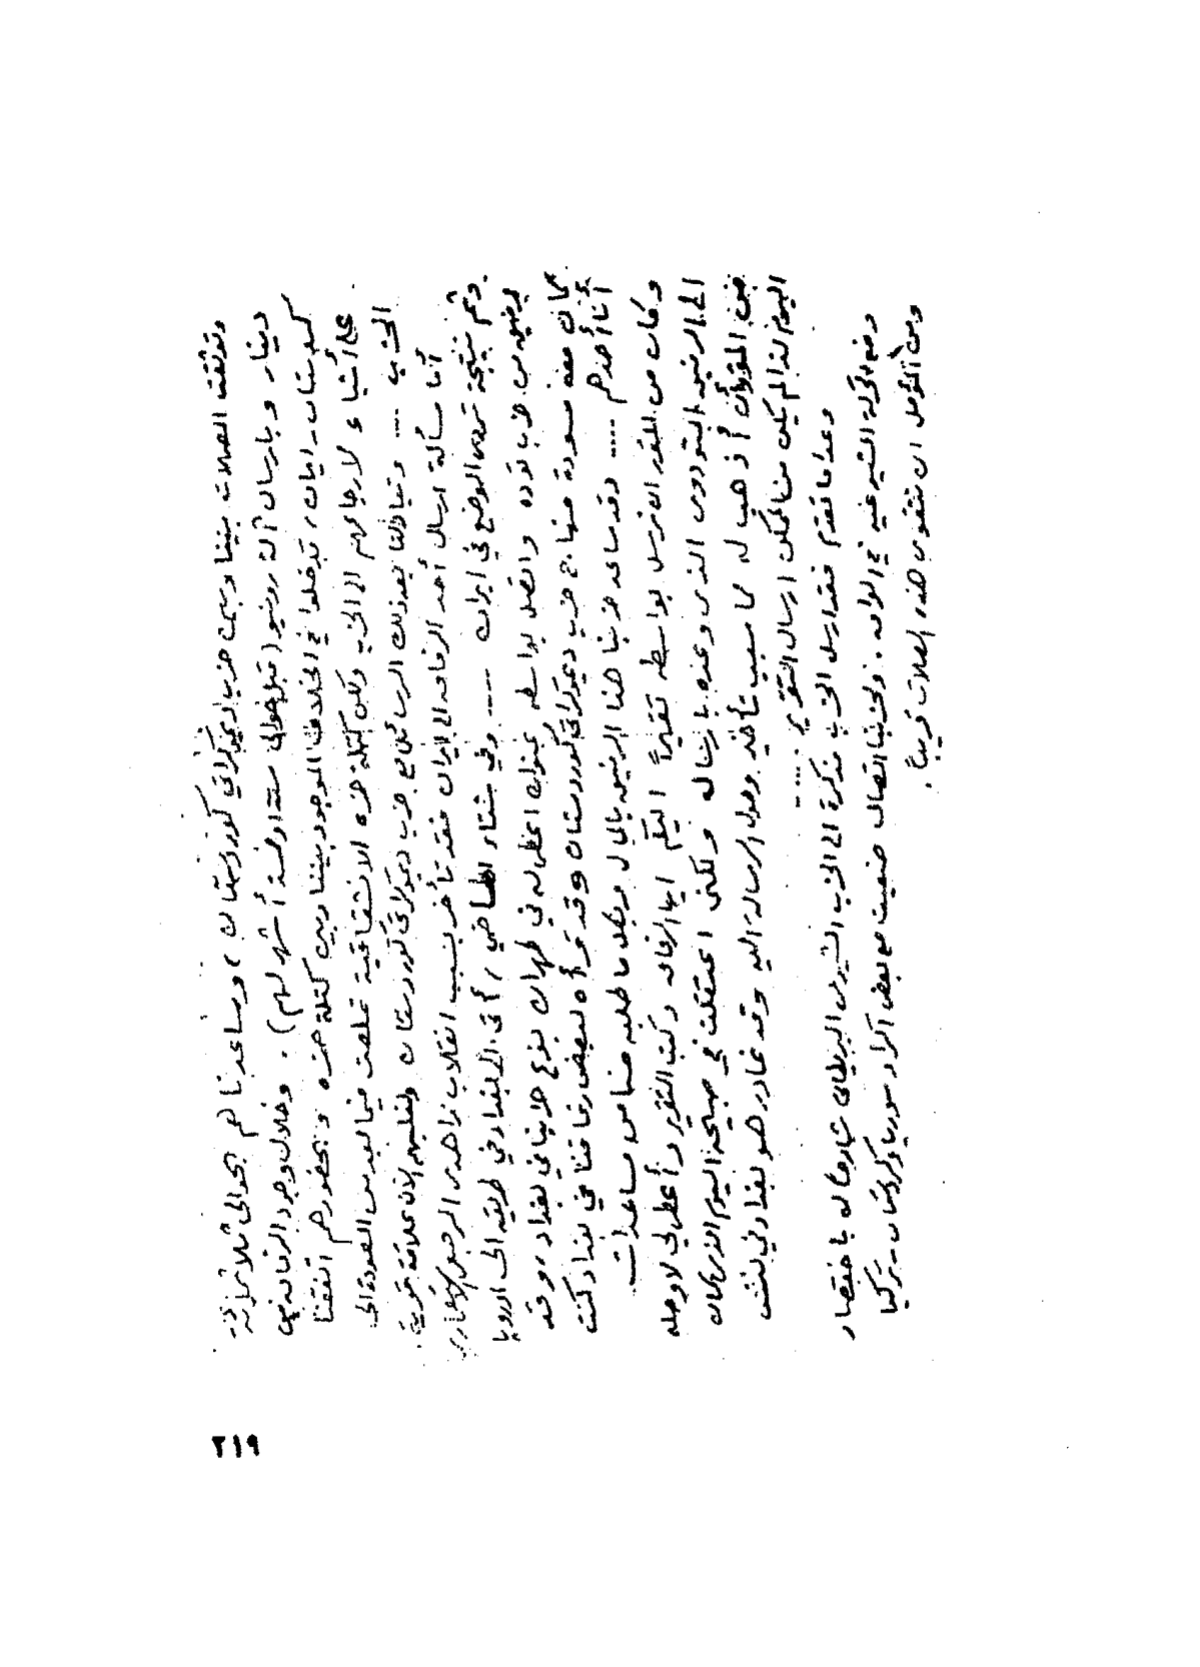 وتوثقت الصلات بيننا وبين حزب ديموكراتي كوردستان، وساعدناهم بحوالى ثلاثمائة
دينار وبارسال آلة رونيو (قبل حوالى ستة او خمسة أشهر لهم). وخلال وجود الرفاق في
كوردستان ـ ايران، تدخلوا في الخلاف الموجود بيننا وبين كتلة حمزه وبحضورهم اتفقنا
على أشياء لارجاعهم الى الحزب ولكن كتلة حمزه الانشقاقية تملصت فيما بعد من العودة الى
الحزب .... وتبادلنا بعد ذلك الرسائل مع حزب ديموكراتي كوردستان ولنا بهم الآن علاقة قوية.
أما مسألة ارسال أحد الرفاق الى ايران فقد تأخر بسبب انقلاب زاهدى الرجعي الاستعماري
وثم نتيجة تردى الوضع في ايران .... وفي شتاء الماضي، أتى الى بغداد في طريقه الى اوروبا
رفيق من حزب توده واتصل بواسطة عنوان اعطى له في طهران بفرع حزبنا في بغداد، وقد
كان معه مسودة منهاج حزب ديموكراتي كوردستان وقد قرأه لبعض رفاقنا في بغداد كنت
أنا أحدهم .... وقد ساعد حزبنا هذا الرفيق بالمال وبكل ما طلبه منا من مساعدات
وكان من المقرر ان نرسل بواسطته تقريراً اليكم ايها الرفاق وكتب التقرير وأعطى لي لاوصله
الى الرفيق التودوى الذى وعده بارساله ولكنى اعتقلت في صبيحة اليوم الذى كان
من المقرر أن أذهب له مما سبب تأخير وصول الرسالة اليه وقد غادر هو بغداد في نفس
اليوم لذا لم يكن من الممكن ارسال التقرير ....
وعدا ما تقدم فقد ارسل الحزب مذكرة الى الحزب الشيوعى البريطاني شارحا له باختصار
وضع الحركة الشيوعية في العراق. ولحزبنا اتصال ضعيف مع بعض اكراد سوريا وكردستان ـ تركيا
ومن المؤمل ان تتقوى هذه الصلات قريباً.
٢١٩